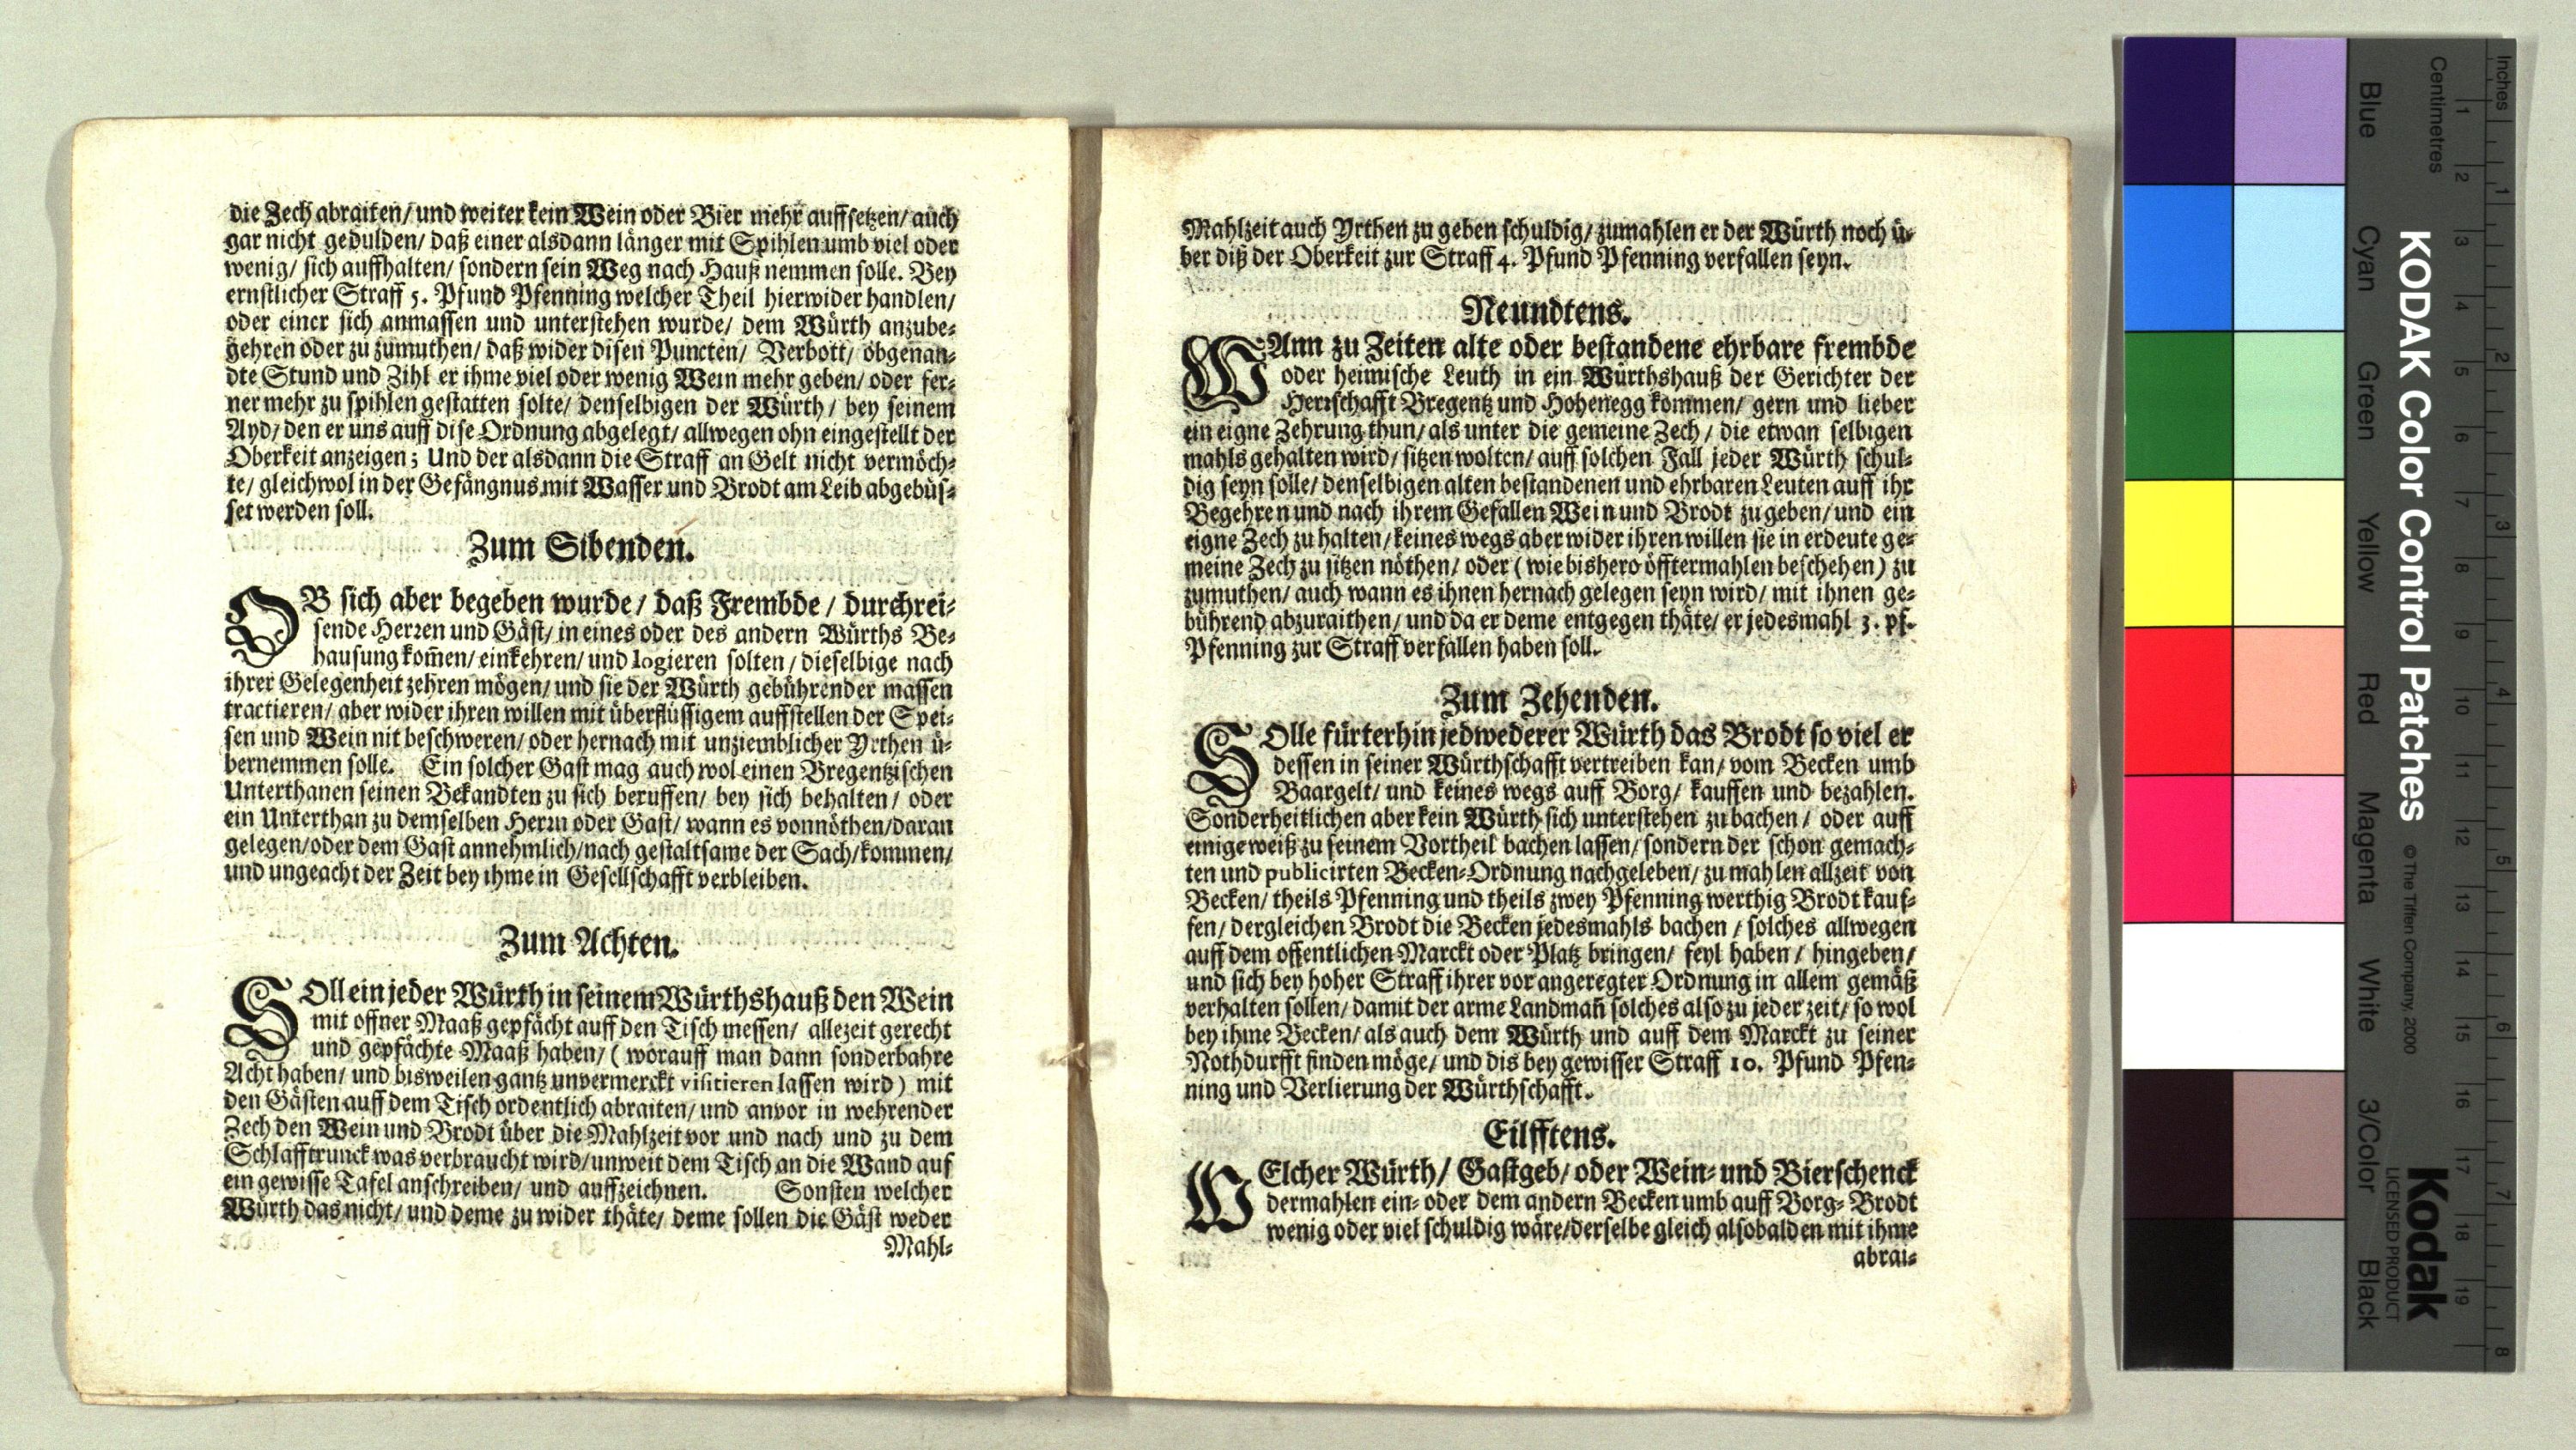 die Zech abraiten/ und weiter kein Wein oder Bier mehr auffsetzen/ auch
gar nicht gedulden/ daß einer alsdann länger mit Spihlen umb viel oder
wenig/ sich auffhalten/ sondern sein Weg nach Hauß nemmen solle. Bey
ernstlicher Straff 5. Pfund Pfenning welcher Theil hierwider handlen/
oder einer sich anmassen und unterstehen wurde/ dem Würth anzube-
gehren oder zu zumuthen/ daß wider disen Puncten/ Verbott/ obgenan-
dte Stund und Zihl er ihme viel oder wenig Wein mehr geben/ oder fer-
ner mehr zu spihlen gestatten solte/ denselbigen der Würth/ bey seinem
Ayd/ den er uns auff dise Ordnung abgelegt/ allwegen ohn eingestellt der
Oberkeit anzeigen; Und der alsdann die Straff an Gelt nicht vermöch-
te/ gleichwol in der Gefängnus mit Wasser und Brodt am Leib abgebüs-
set werden soll.
Zum Sibenden.
OB sich aber begeben wurde/ daß Frembde/ durchrei-
sende Herren und Gäst/ in eines oder des andern Würths Be-
hausung kom̃en/ einkehren/ und logieren solten/ dieselbige nach
ihrer Gelegenheit zehren mögen/ und sie der Würth gebührender massen
tractieren/ aber wider ihren willen mit überflüssigem auffstellen der Spei-
sen und Wein nit beschweren/ oder hernach mit unziemblicher Yrthen ü-
bernemmen solle. Ein solcher Gast mag auch wol einen Bregentzischen
Unterthanen seinen Bekandten zu sich beruffen/ bey sich behalten/ oder
ein Unterthan zu demselben Herrn oder Gast/ wann es vonnöthen/ daran
gelegen/ oder dem Gast annehmlich/ nach gestaltsame der Sach/ kommen/
und ungeacht der Zeit bey ihme in Gesellschafft verbleiben.
Zum Achten.
SOll ein jeder Würth in seinem Würthshauß den Wein
mit offner Maaß gepfächt auff den Tisch messen/ allezeit gerecht
und gepfächte Maaß haben/ (worauff man dann sonderbahre
Acht haben/ und bisweilen gantz unvermerckt visitieren lassen wird) mit
den Gästen auff dem Tisch ordentlich abraiten/ und anvor in wehrender
Zech den Wein und Brodt über die Mahlzeit vor und nach und zu dem
Schlafftrunck was verbraucht wird/ unweit dem Tisch an die Wand auf
ein gewisse Tafel anschreiben/ und auffzeichnen. Sonsten welcher
Würth das nicht/ und deme zu wider thäte/ deme sollen die Gäst weder
Mahl-
Mahlzeit auch Yrthen zu geben schuldig/ zumahlen er der Würth noch ü-
ber diß der Oberkeit zur Straff 4. Pfund Pfenning verfallen seyn.
Neundtens.
WAnn zu Zeiten alte oder bestandene ehrbare frembde
oder heimische Leuth in ein Würthshauß der Gerichter der
Herrschafft Bregentz und Hohenegg kommen/ gern und lieber
ein eigne Zehrung thun/ als unter die gemeine Zech/ die etwan selbigen
mahls gehalten wird/ sitzen wolten/ auff solchen Fall jeder Würth schul-
dig seyn solle/ denselbigen alten bestandenen und ehrbaren Leuten auff ihr
Begehren und nach ihrem Gefallen Wein und Brodt zu geben/ und ein
eigne Zech zu halten/ keines wegs aber wider ihren willen sie in erdeute ge-
meine Zech zu sitzen nöthen/ oder (wie bishero öfftermahlen beschehen) zu
zumuthen/ auch wann es ihnen hernach gelegen seyn wird/ mit ihnen ge-
bührend abzuraithen/ und da er deme entgegen thäte/ er jedesmahl 3. pf.
Pfenning zur Straff verfallen haben soll.
Zum Zehenden.
SOlle fürterhin jedwederer Würth das Brodt so viel er
dessen in seiner Würthschafft vertreiben kan/ vom Becken umb
Baargelt/ und keines wegs auff Borg/ kauffen und bezahlen.
Sonderheitlichen aber kein Würth sich unterstehen zu bachen/ oder auff
einige weiß zu seinem Vortheil bachen lassen/ sondern der schon gemach-
ten und publicirten Becken-Ordnung nachgeleben/ zu mahlen allzeit von
Becken/ theils Pfenning und theils zwey Pfenning werthig Brodt kauf-
fen/ dergleichen Brodt die Becken jedesmahls bachen/ solches allwegen
auff dem offentlichen Marckt oder Platz bringen/ feyl haben/ hingeben/
und sich bey hoher Straff ihrer vor angeregter Ordnung in allem gemäß
verhalten sollen/ damit der arme Landmañ solches also zu jeder zeit/ so wol
bey ihme Becken/ als auch dem Würth und auff dem Marckt zu seiner
Nothdurfft finden möge/ und dis bey gewisser Straff 10. Pfund Pfen-
ning und Verlierung der Würthschafft.
Eilfftens.
WElcher Würth/ Gastgeb/ oder Wein- und Bierschenck
dermahlen ein- oder dem andern Becken umb auff Borg- Brodt
wenig oder viel schuldig wäre/ derselbe gleich alsobalden mit ihme
abrai-
KODAK Color Control Patches © The Tiffen Company, 2000
Kodak
LICENSED PRODUCT
Blue Cyan Green Yellow Red Magenta White 3/Color Black
Centimetres 1 2 3 4 5 6 7 8 9 10 11 12 13 14 15 16 17 18 19
Inches 1 2 3 4 5 6 7 8